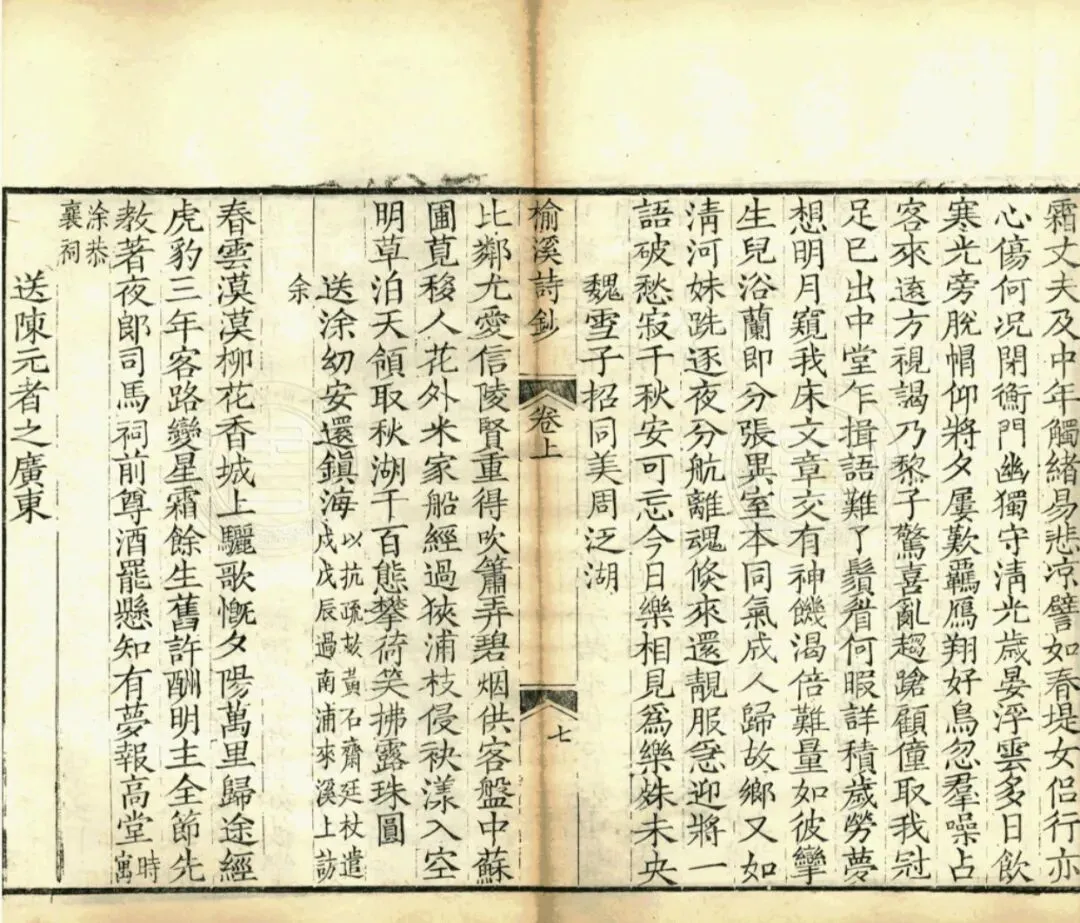 霜丈夫及中年觸緒易悲凉譬如春堤女侣行亦
心傷何况閉衡門幽獨守清光歲晏浮雲多日飲
寒光旁脫帽仰將夕屢歎羈鴈翔好鳥忽羣噪占
客來遠方視謁乃黎子驚喜亂趨蹌顧僮取我冠
足已出中堂乍揖語難了鬚眉何暇詳積歲勞夢
想明月窺我床文章交有神饑渴倍難量如彼孿
生兒浴蘭即分張異室本同氣成人歸故鄉又如
淸河妹跣逐夜分航離魂倐來還靚服急迎將一
語破愁寂千秋安可忘今日樂相見爲樂姝未央
魏雪子招同美周泛湖
榆溪詩鈔
卷上
七
比鄰尤愛信陵賢重得吹簫弄碧烟供客盤中蘇
圃莧移人花外米家船經過狹浦枝侵袂漾入空
明草泊天領取秋湖千百態攀荷笑拂露珠圓
送涂幼安還鎮海
以抗疏救黃石齋廷杖遣
戍戊辰過南浦來溪上訪
余
春雲漠漠柳花香城上驪歌慨夕陽萬里歸途經
虎豹三年客路變星霜餘生舊許酬明主全節先
教著夜郎司馬祠前尊酒罷懸知有夢報高堂
時
寓
涂恭
襄祠
送陳元者之廣東